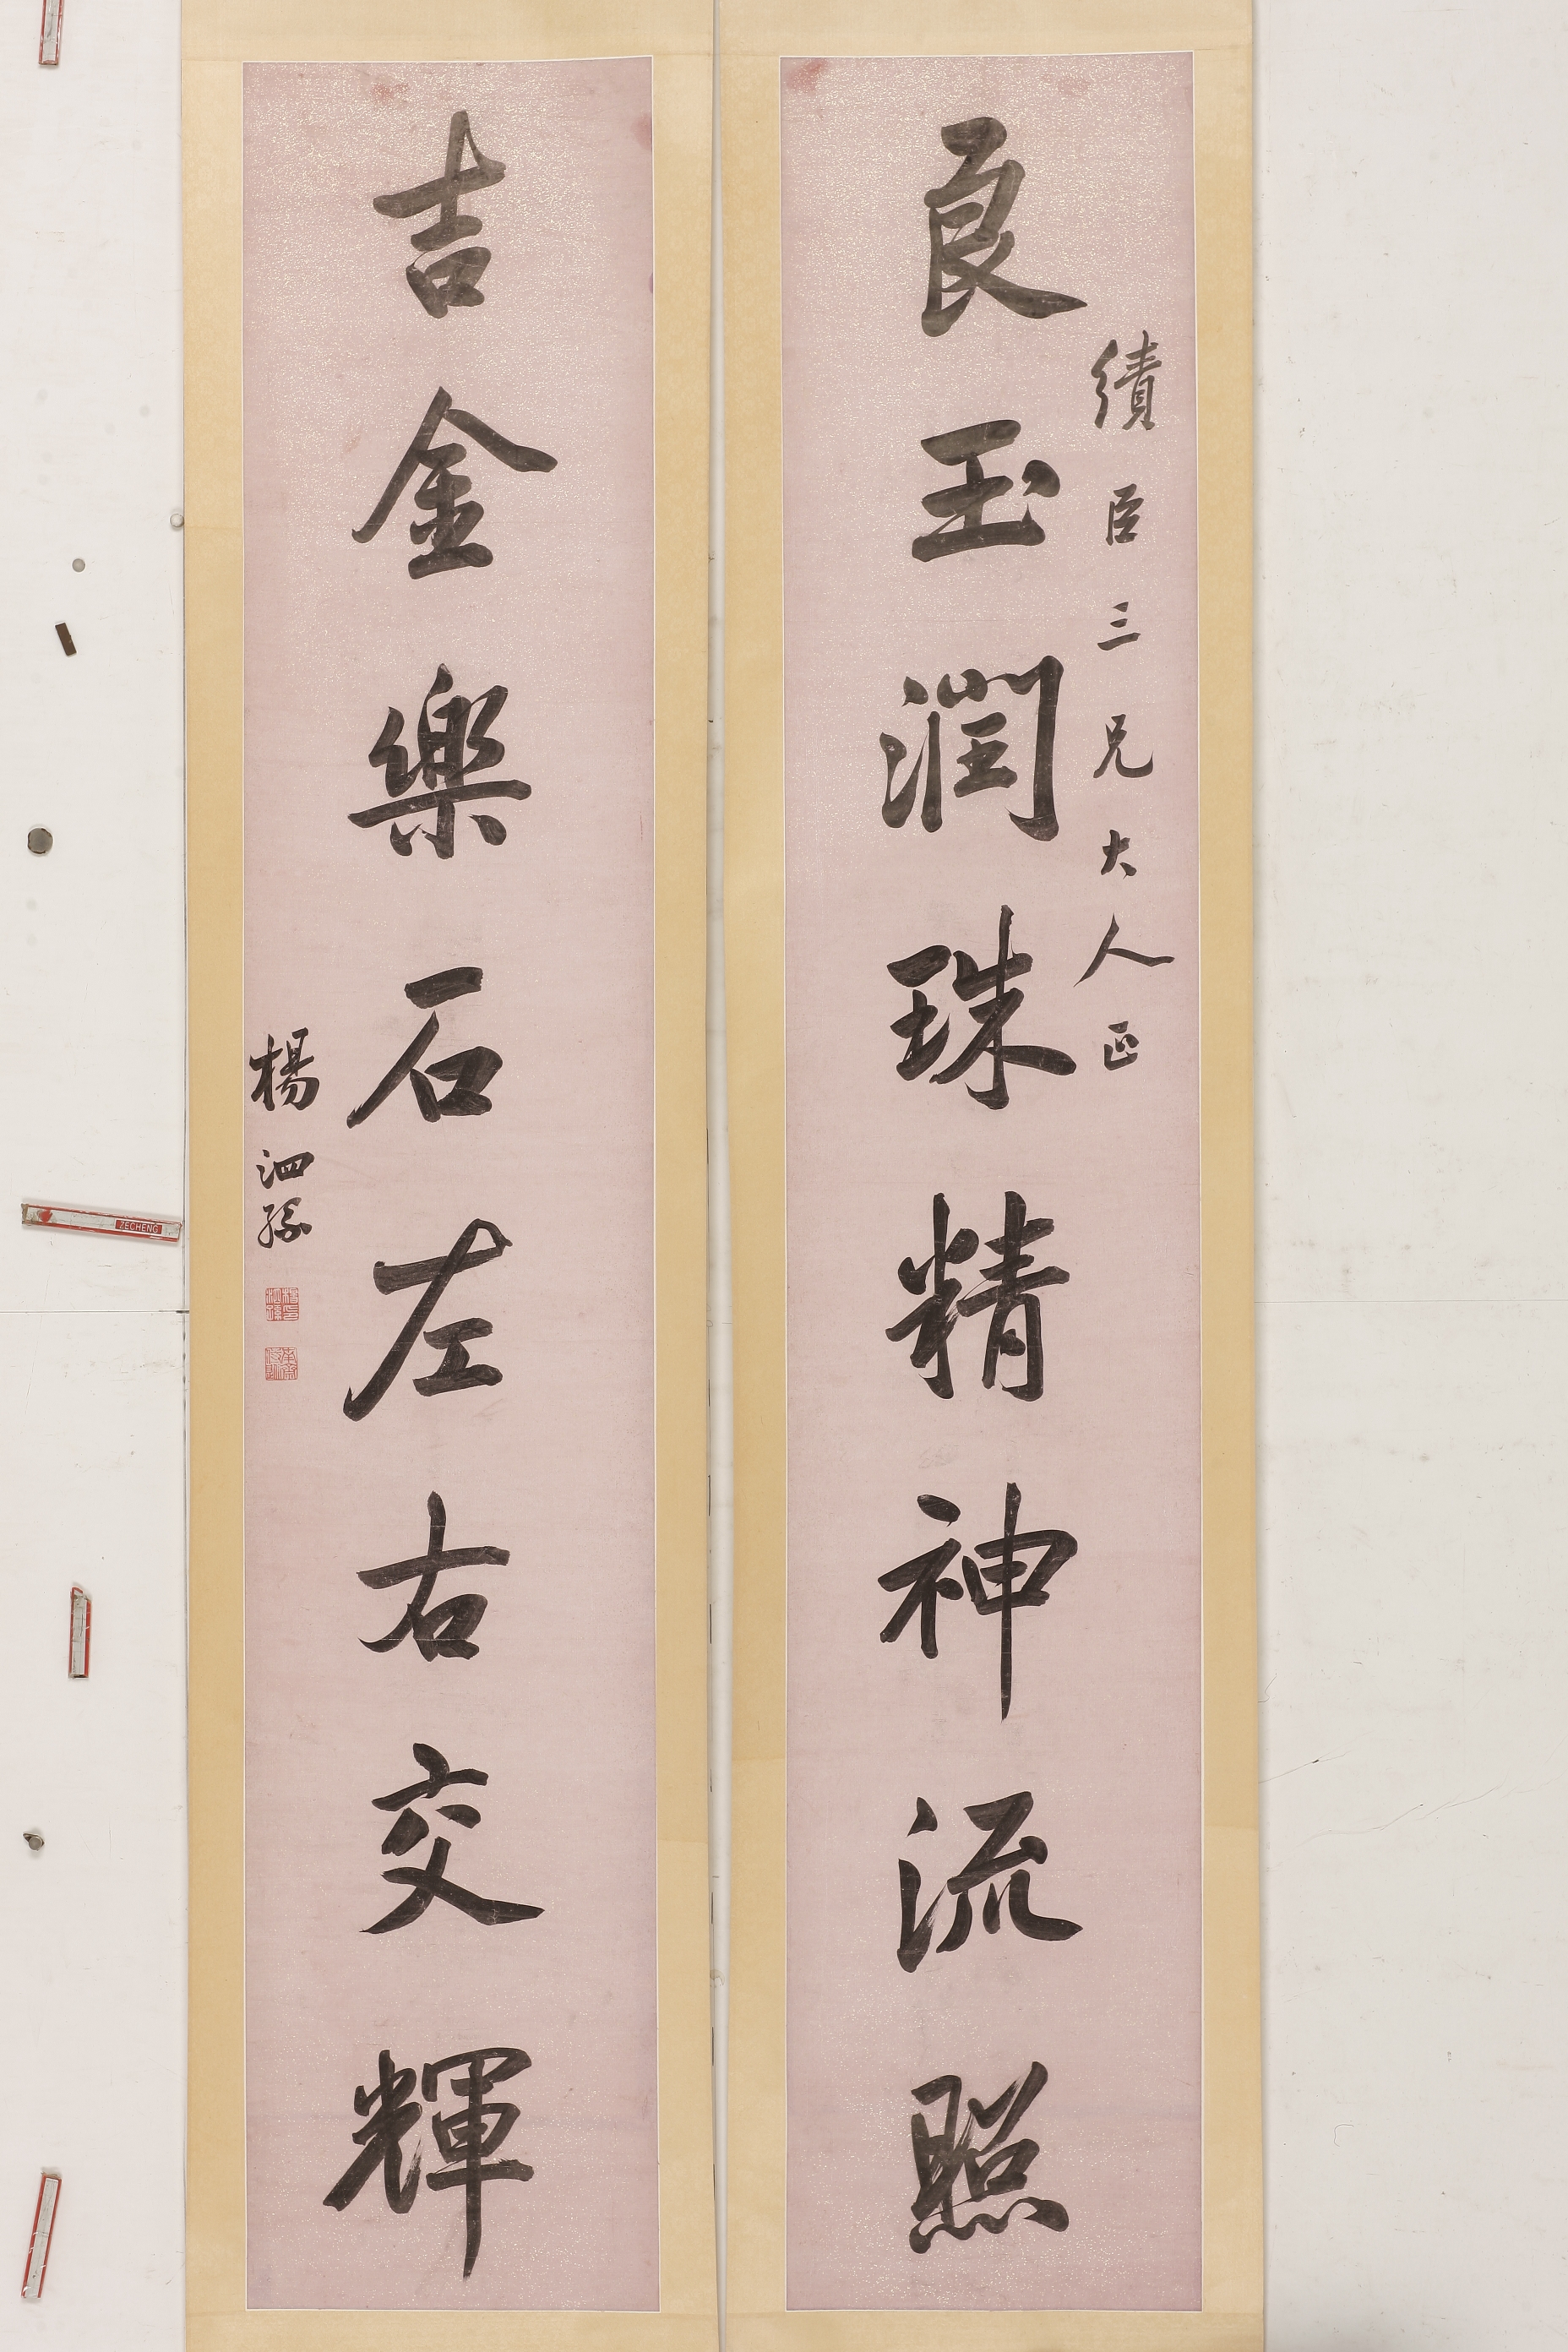 績臣三兄大人正
良玉潤珠精神流照
吉金樂石左右交輝
楊泗孫
ZECHENG